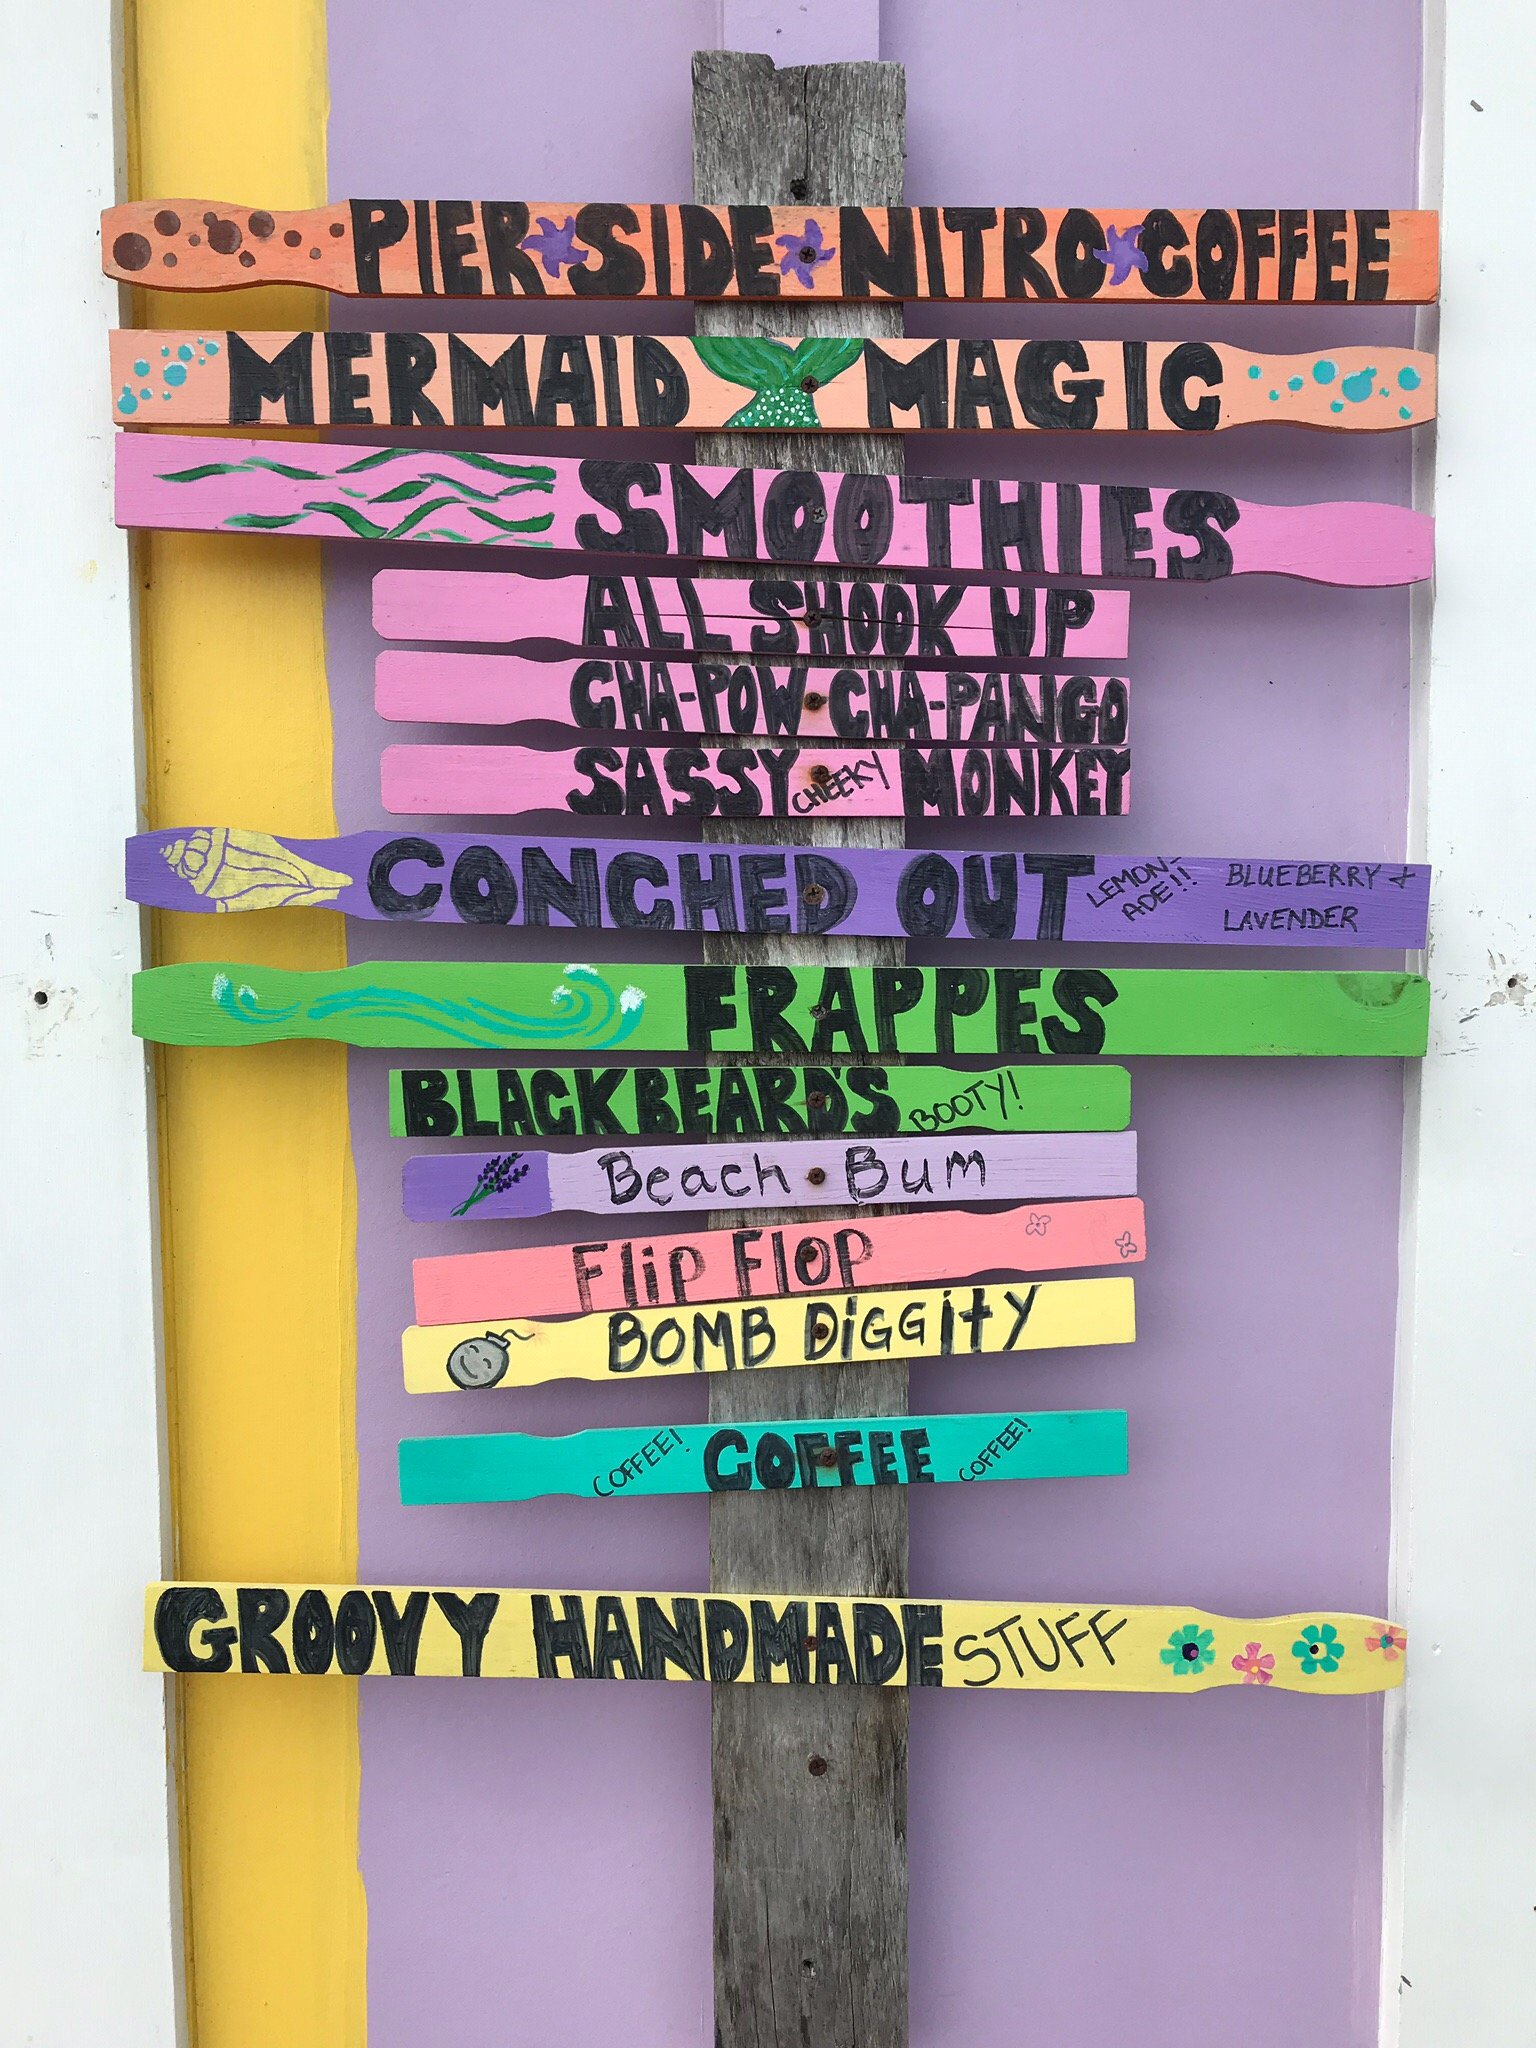 PIER SIDE NITRO COFFEE
MERMAID MAGIC
SMOOTHIES
ALL SHOOK UP
CHA-POW CHA-PANGO
SASSY CHEEKY MONKEY
CONCHED OUT LEMON-ADE!! BLUEBERRY + LAVENDER
FRAPPES
BLACKBEARD'S BOOTY!
Beach Bum
Flip Flop
BOMB DiGGity
COFFEE! COFFEE COFFEE!
GROOVY HANDMADE STUFF